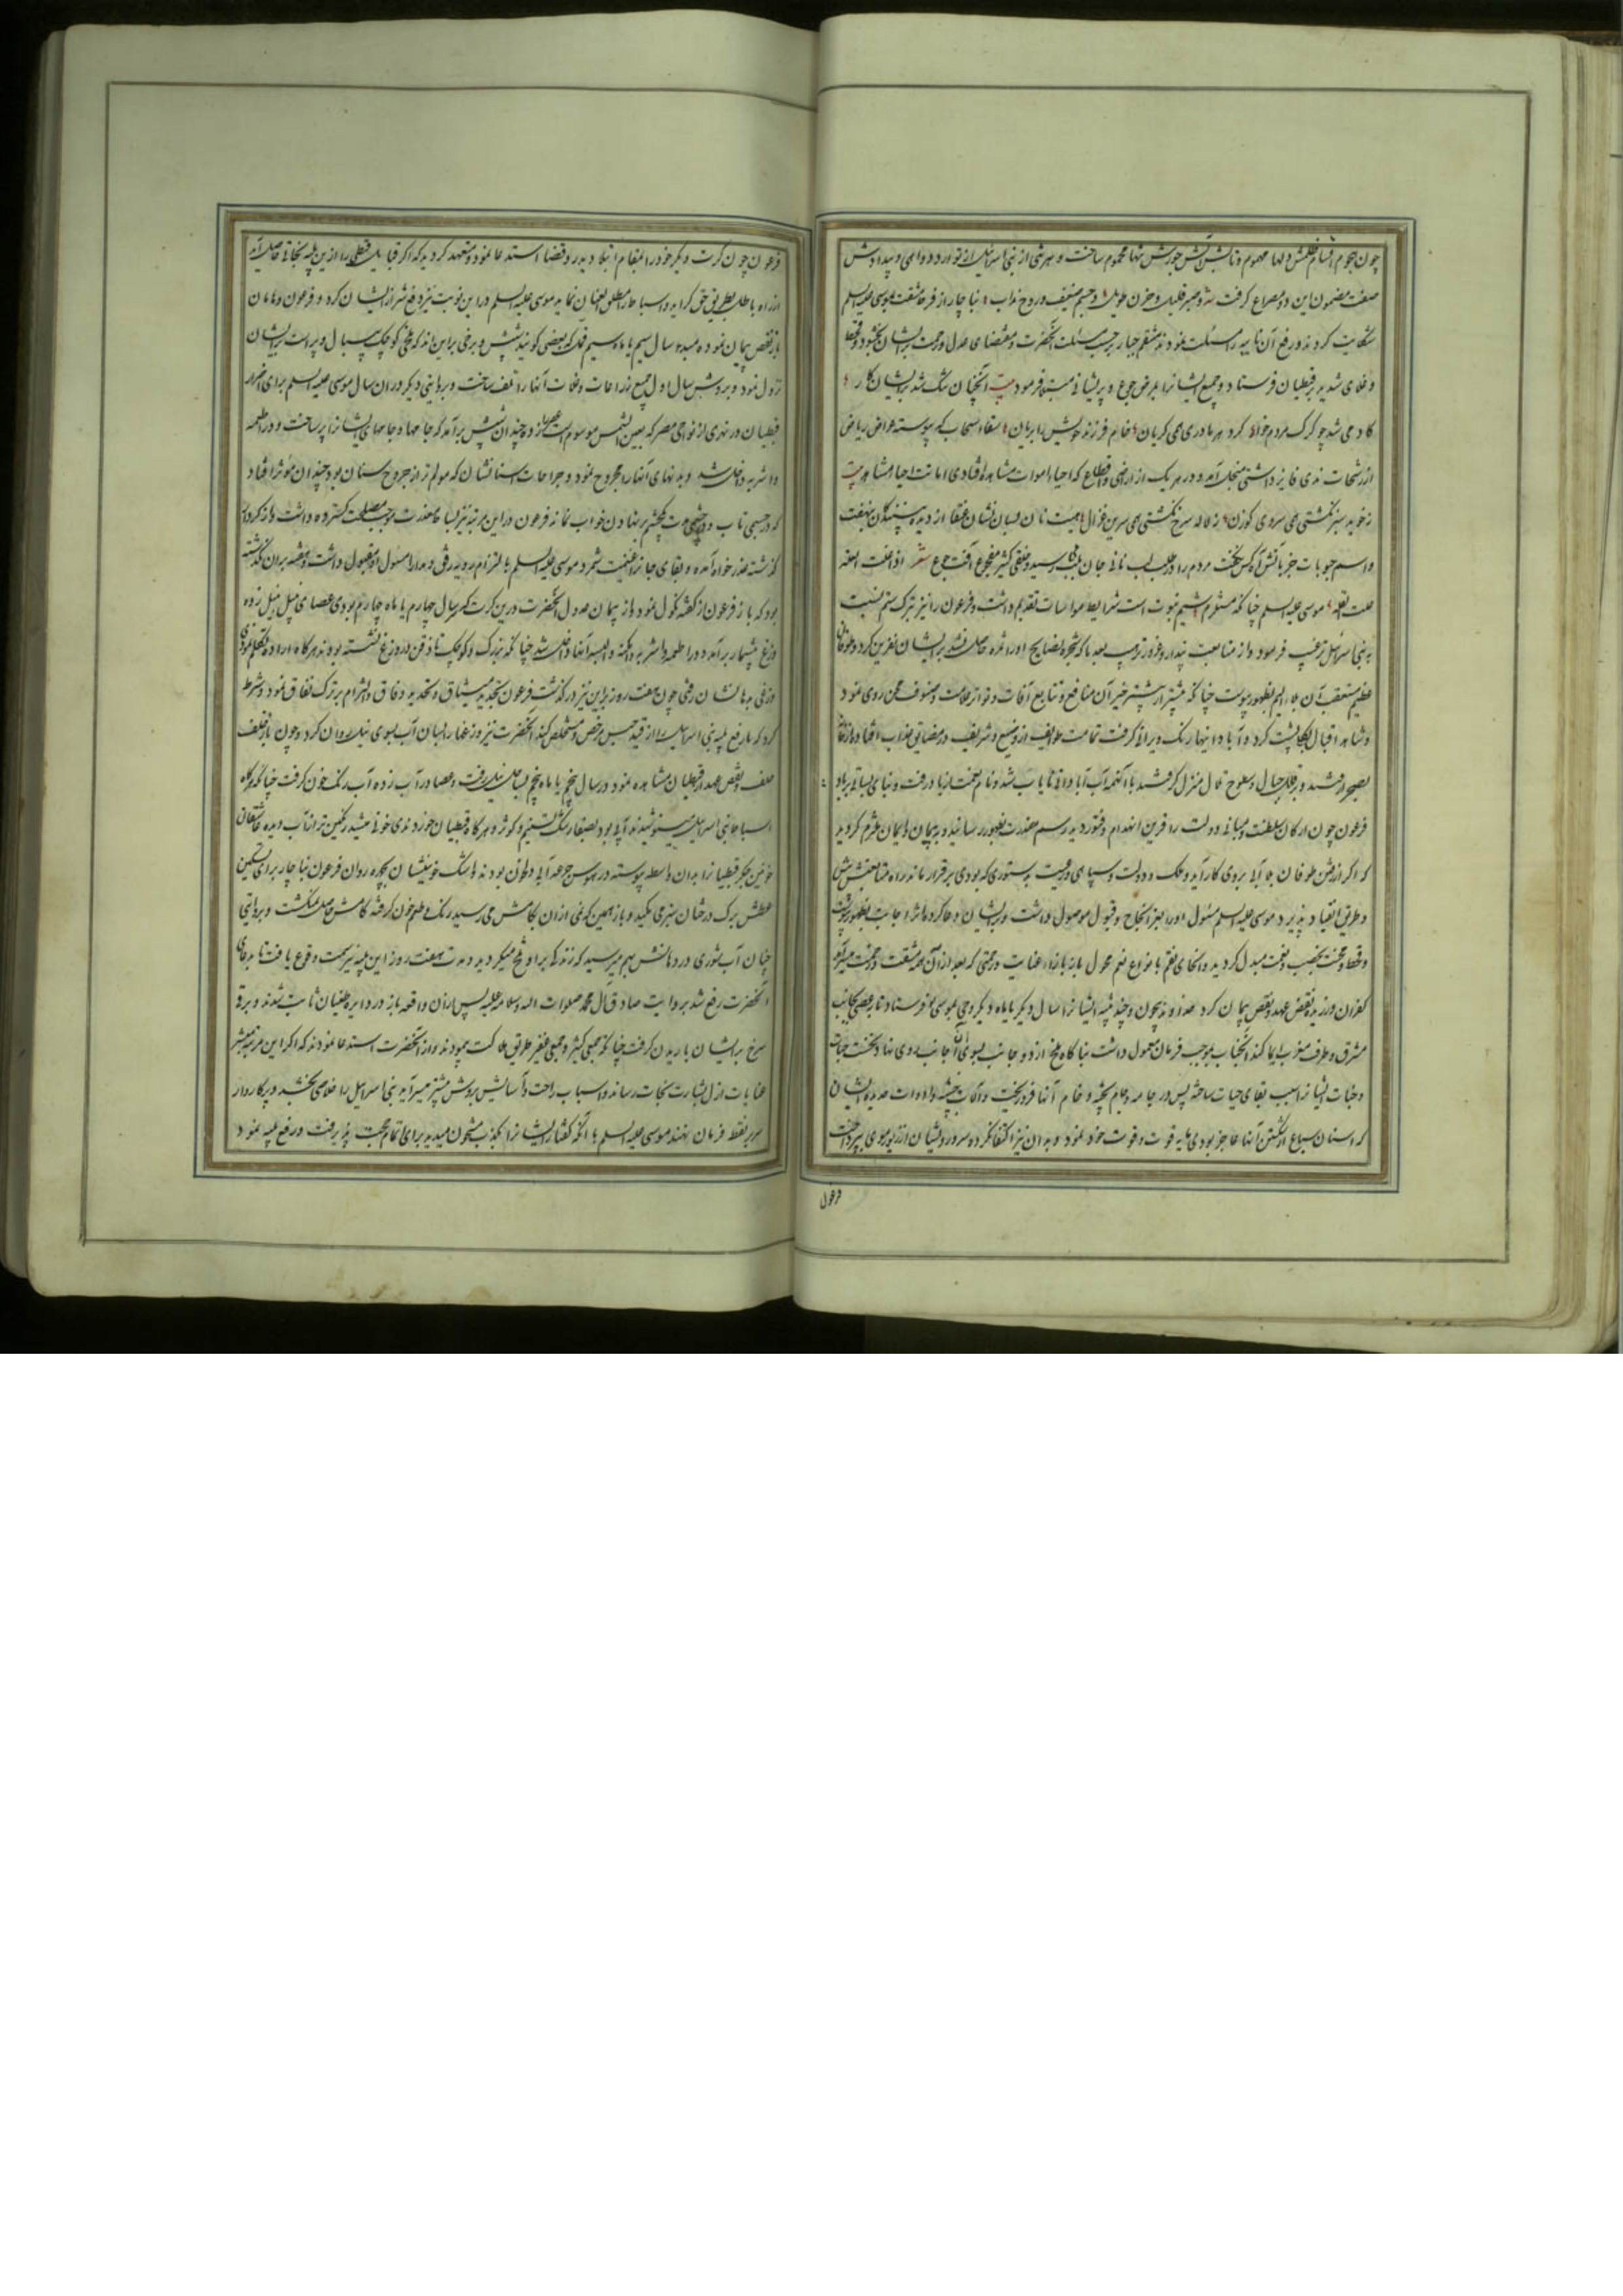 چون هجوم اقسام ظلمش دلها مهموم و تابش آتش جورش تنها محموم ساخت و هر شی از بنی اسرائیل از توارد دواهی و بیدادش
صفت مضمون این دو مصراع گرفت شعر و صبر قلیل و حزن طویل و جسم ضعیف و روح مذاب بناچار از فرط مشقت بموسی علیه السلم
شکایت کردند و رفع آن داهیه را مسئلت نمودند منتقم جبار بر حسب مسئلت آنحضرت و مقتضای عدل و رحمت بر ایشان بخشود و قحط
و غلای شدید بر قبطیان فرستاد و جمیع ایشانرا بمرض جوع و پریشانی مبتلا فرمود بیت آنچنان تنگ شد بر ایشان کار
که آدمی شد چو گرگ مردم خوار کرد هر مادری همی گریان خام فرزند خویش را بریان سقاء سحاب که پیوسته حیاض ریاض
از رشحات ندی فایز داشتی منجلی آمد و در هر یک از اراضی و اقطاع که احیاء اموات مشاهده افتادی اماتت احیا مشاهد بیت
ز خوید سبز نگشتی همی سروی گوزن ز لاله سرخ نگشتی همی سرین غزال هیبت نان بسان نشان عنقا از دیده بینندگان نهفت
و اسم حبوبات جز با آتش آن کس نگفت مردم را در طلب لب نانی جان بلب رسید و خلقی کثیر مفجوع آفت جوع شعر اذا خفت العلة
حلت القلة موسی علیه السلم چنانکه مستلزم شیم نبوت است شرایط مواسات تقدیم داشت و فرعون را نیز بترک ستم نسبت
به بنی اسرائیل ترغیب فرمود و از متابعت پندار و غرور ترهیب بعد ما که شجره نصایح او را ثمره حاصل نشد بر ایشان نفرین کرد و طوفانی
عظیم متعقب آن بلاء الیم بظهور پیوست چنانکه بیشتر از پیشتر خیر آن منافع و تتابع آفات و تواتر عاهات و صنوف محن روی نمود
و شاهد اقبال بکلی پشت کرد و آبادانیها رنگ ویرانی گرفت تمامت طوایف از وضیع و شریف در مضایق عذاب افتاده از خانها
بصحرا شدند و بر قلل جبال و سطوح تلال منزل گرفتند با آنهمه آب آبادانی نایاب شد و نام تخت از پا در رفت و بنای بسیاتی بر باد
فرعون چون ارکان سلطنت و مبانی دولت را قرین انهدام و فتور دید رسم معذرت بظهور رسانید و به پیمان و ایمان ملتزم گردید
که اگر از فتن طوفان بلا آبی بر روی کار آید و ملک و دولت و سپاهی و رعیت بدستوری که بودی برقرار ماند راه متابعتش پیش
و طریق انقیاد پذیرد موسی علیه السلم مسئول او را بعز انجاح و قبول موصول داشت و بر ایشان دعا کرد و اثر اجابت بظهور پیوست
و قحط و محنت بخصب و نعمت مبدل گردید و انحای نقم با نواع نعم محول باز بازاء عنایت و رحمتی که بعد از آن همه مشقت و زحمت میسر آمد
کفران ورزیده نقض عهد و نقص پیمان کرد خداوند بیچون و چند بلیه ایشانرا سال دیگر یا ماه دیگر وحی بموسی فرستاد تا بر عصی بجانب
مشرق و طرف مغرب ایما کند آنجناب بموجب فرمان معمول داشت بناگاه ملخ از دو جانب بسوی آن جانب روی نهاد نخست حیات
و نبات ایشانرا سبب بقای حیات ساخته پس در جامه و جام پخته و خام آنها فرو ریخت و آلات خشب و ادوات حدید ایشان
که اسنان سباع از شکستن آنها عاجز بودی مایه قوت و قوت خود نمود و بدان نیز اکتفا نکرده سر و رو ایشان از زیور موی بپرداخت
فرعون
فرعون چون کرت دیگر خود را بانتقام مبتلا دید رد قضا استدعا نمود و متعهد گردید که اگر قبایل قبطی را ازین بلیه نجاتی حاصل آید
از راه باطل بطریق حق گراید و اسباط را مطلق العنان نماید موسی علیه السلم در این نوبت نیز دفع شر از ایشان کرد و فرعون و هامان
باز نقض پیمان نموده مبدء سال سیم یا ماه سیم قمل که بعضی گویند شپش و برخی بر این اند که ملخی کوچک بی بال و پر است بر ایشان
نزول نمود و بر وش سال اول جمیع زراعات و غلات آنها را تلف ساخت و بروایتی دیگر در ان سال موسی علیه السلم برای اضرار
قبطیان در نهری از نواحی مصر که بعین الشمس موسوم است عصا زد و چندان شپش برآمد که جامها و جامهای ایشانرا پر ساخت و در اطعمه
و اشربه داخل شد و بدنهای آنها را مجروح نمود و جراحات اسنانشان که مولم تر از جروح سنان بود چندان مؤثر افتاد
که در جسمی تاب و در چشمی قوت یک چشم بر نهادن خواب نماند فرعون در این مرتبه نیز لسان معذرت بموجب مصلحت گسترده داشت و از کردار
گذشته عذرخواه آمده و بقای جانرا غنیمت شمرد موسی علیه السلم با التزام رویه رفق و مدارا مسئول او مقبول داشت و هفته بر ان گذشته
بود که باز فرعون از گفته نکول نمود و از پیمان عدول آنحضرت درین کرت که سال چهارم یا ماه چهارم بودی عصا می بیل نیل زده
وزغ بیشمار برآمد و در اطعمه و اشربه و امکنه و البسه آنها داخل شد چنانکه بزرگ و کوچک تا ذقن در وزغ نشسته بودند و هرگاه اراده تکلم نمودی
وزغی بدهانشان رفتی چون هفت روز بر این نیز درگذشت فرعون بتجدید میثاق و تمهید وفاق و التزام بر ترک نفاق نمود و شرط
کرد که با رفع بلیه بنی اسرائیل را از قید حبس مرخص و مستخلص کند آنحضرت نیز وزغها را بسان آب بسوی نیل روان کرد و چون باز خلف
حلف و نقض عهد از قبطیان مشاهده نمود در سال پنجم یا ماه پنجم بساحل نیل رفت و عصا در آب زده آب رنگ خون گرفت چنانکه هرگاه
اسباط بنی اسرائیل مینوشیدند آبی بود بصفا رشک تسنیم و کوثر و هرگاه قبطیان خوردندی خونی میشد رنگین تر از آب دیده عاشقان
خونین جگر قبطیانرا بدان واسطه پیوسته در هوس جرعه آبی دل خون بودند و اشک خونینشان بچهره روان فرعون بناچار برای تسکین
عطش برگ درختان سبز می مکید و باز همین که نمی از ان بکامش می رسید رنگ و طعم خون گرفته کامش حاصل نمیگشت و بروایتی
چنان آب شوری در دهانش بهم میرسید که زندگی بر او تلخ میگردید و مدت هفت روز این بلیه نیز سمت وقوع یافت تا بدعای
آنحضرت رفع شد بروایت صادق آل محمد صلوات الله و سلامه علیه پس از آن واقعه باز در دایره طغیان ثابت شدند و برف
سرخ بر ایشان باریدن گرفت چنانکه جمعی کثیر و جمعی غفیر طریق هلاکت پیمودند و از آنحضرت استدعا نمودند که اگر این مرتبه مبشر
عنایات ازل بشارت نجات رساند و اسباب راحت و آسایش بروش پیشتر میسر آید بنی اسرائیل را خلاصی بخشند و پرگار وار
سر بر نقطه فرمان نهند موسی علیه السلم با آنکه گفتار ایشانرا بکذب مشحون میدید برای اتمام حجت پذیرفت و رفع بلیه نمود